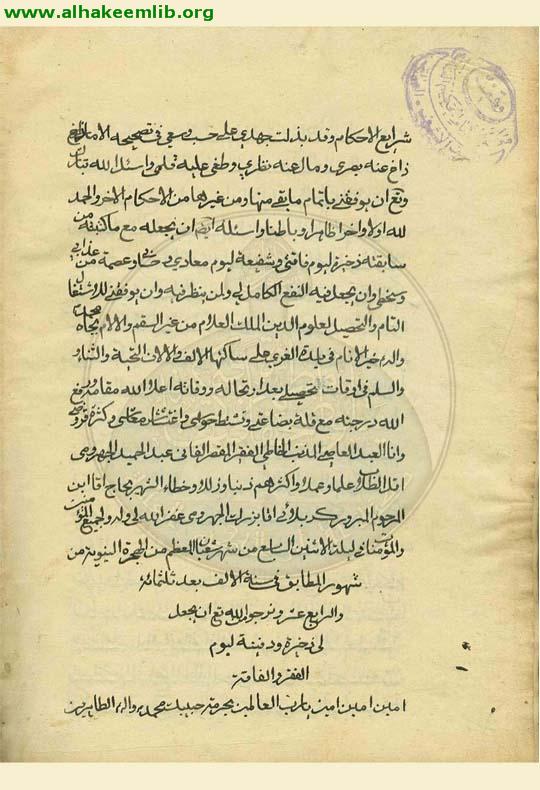 www.alhakeemlib.org
شرايع الاحكام وقد بذلت جهدي على حسب وسعي في تصحيحه الا ما
زاغ عنه بصري ومال عنه نظري وطغى عليه قلمي واسئل الله
وتع ان يوفقني باتمام ما بقي منها ومن غيرها من الاحكام الاخر والحمد
لله اولا واخرا ظاهرا وباطنا واسئله ايضا ان يجعله مع ما كتبته من
سابقته ذخيرة ليوم فاقتي وشفيعة ليوم معادي وعصمة من عذابه
وسخطه وان يجعل فيه النفع الكامل لي ولمن ينظر فيه وان يوفقني للاشتغال
التام والتحصيل لعلوم الدين الملك العلام من غير السقم والالام بجاه محمد
واله خير الانام في بلدة الغري على ساكنها الالف والالاف التحية والثناء
والسلم في اوقات تحصيلي بعد ارتحاله ووفاته اعلا الله مقامه ورفع
الله درجته مع قلة بضاعتي وتشتط حواسي واغتشاش وكثرة
وانا العبد العاصي المذنب الخاطي الفقير المقصر الفاني عبد الحميد الجهرمي
اقل الطلاب علما وعملا واكثرهم ذنبا وزللا وخطاء الشهير بحاج اقا ابن
المرحوم المبرور كربلائي اقا بزرك الجهرمي غفر الله لي وله ولجميع المؤمنين
والمؤمنات في ليلة الاثنين السابع من شهر شعبان المعظم من الهجرة النبوية من
شهور المطابق سنة الالف بعد ثلثمائة
والرابع عشر ونرجو الله تع ان يجعل
لي ذخيرة ودفينة ليوم
الفقر والفاقة
امين امين امين يا رب العالمين بحرمة حبيبك محمد واله الطاهرين